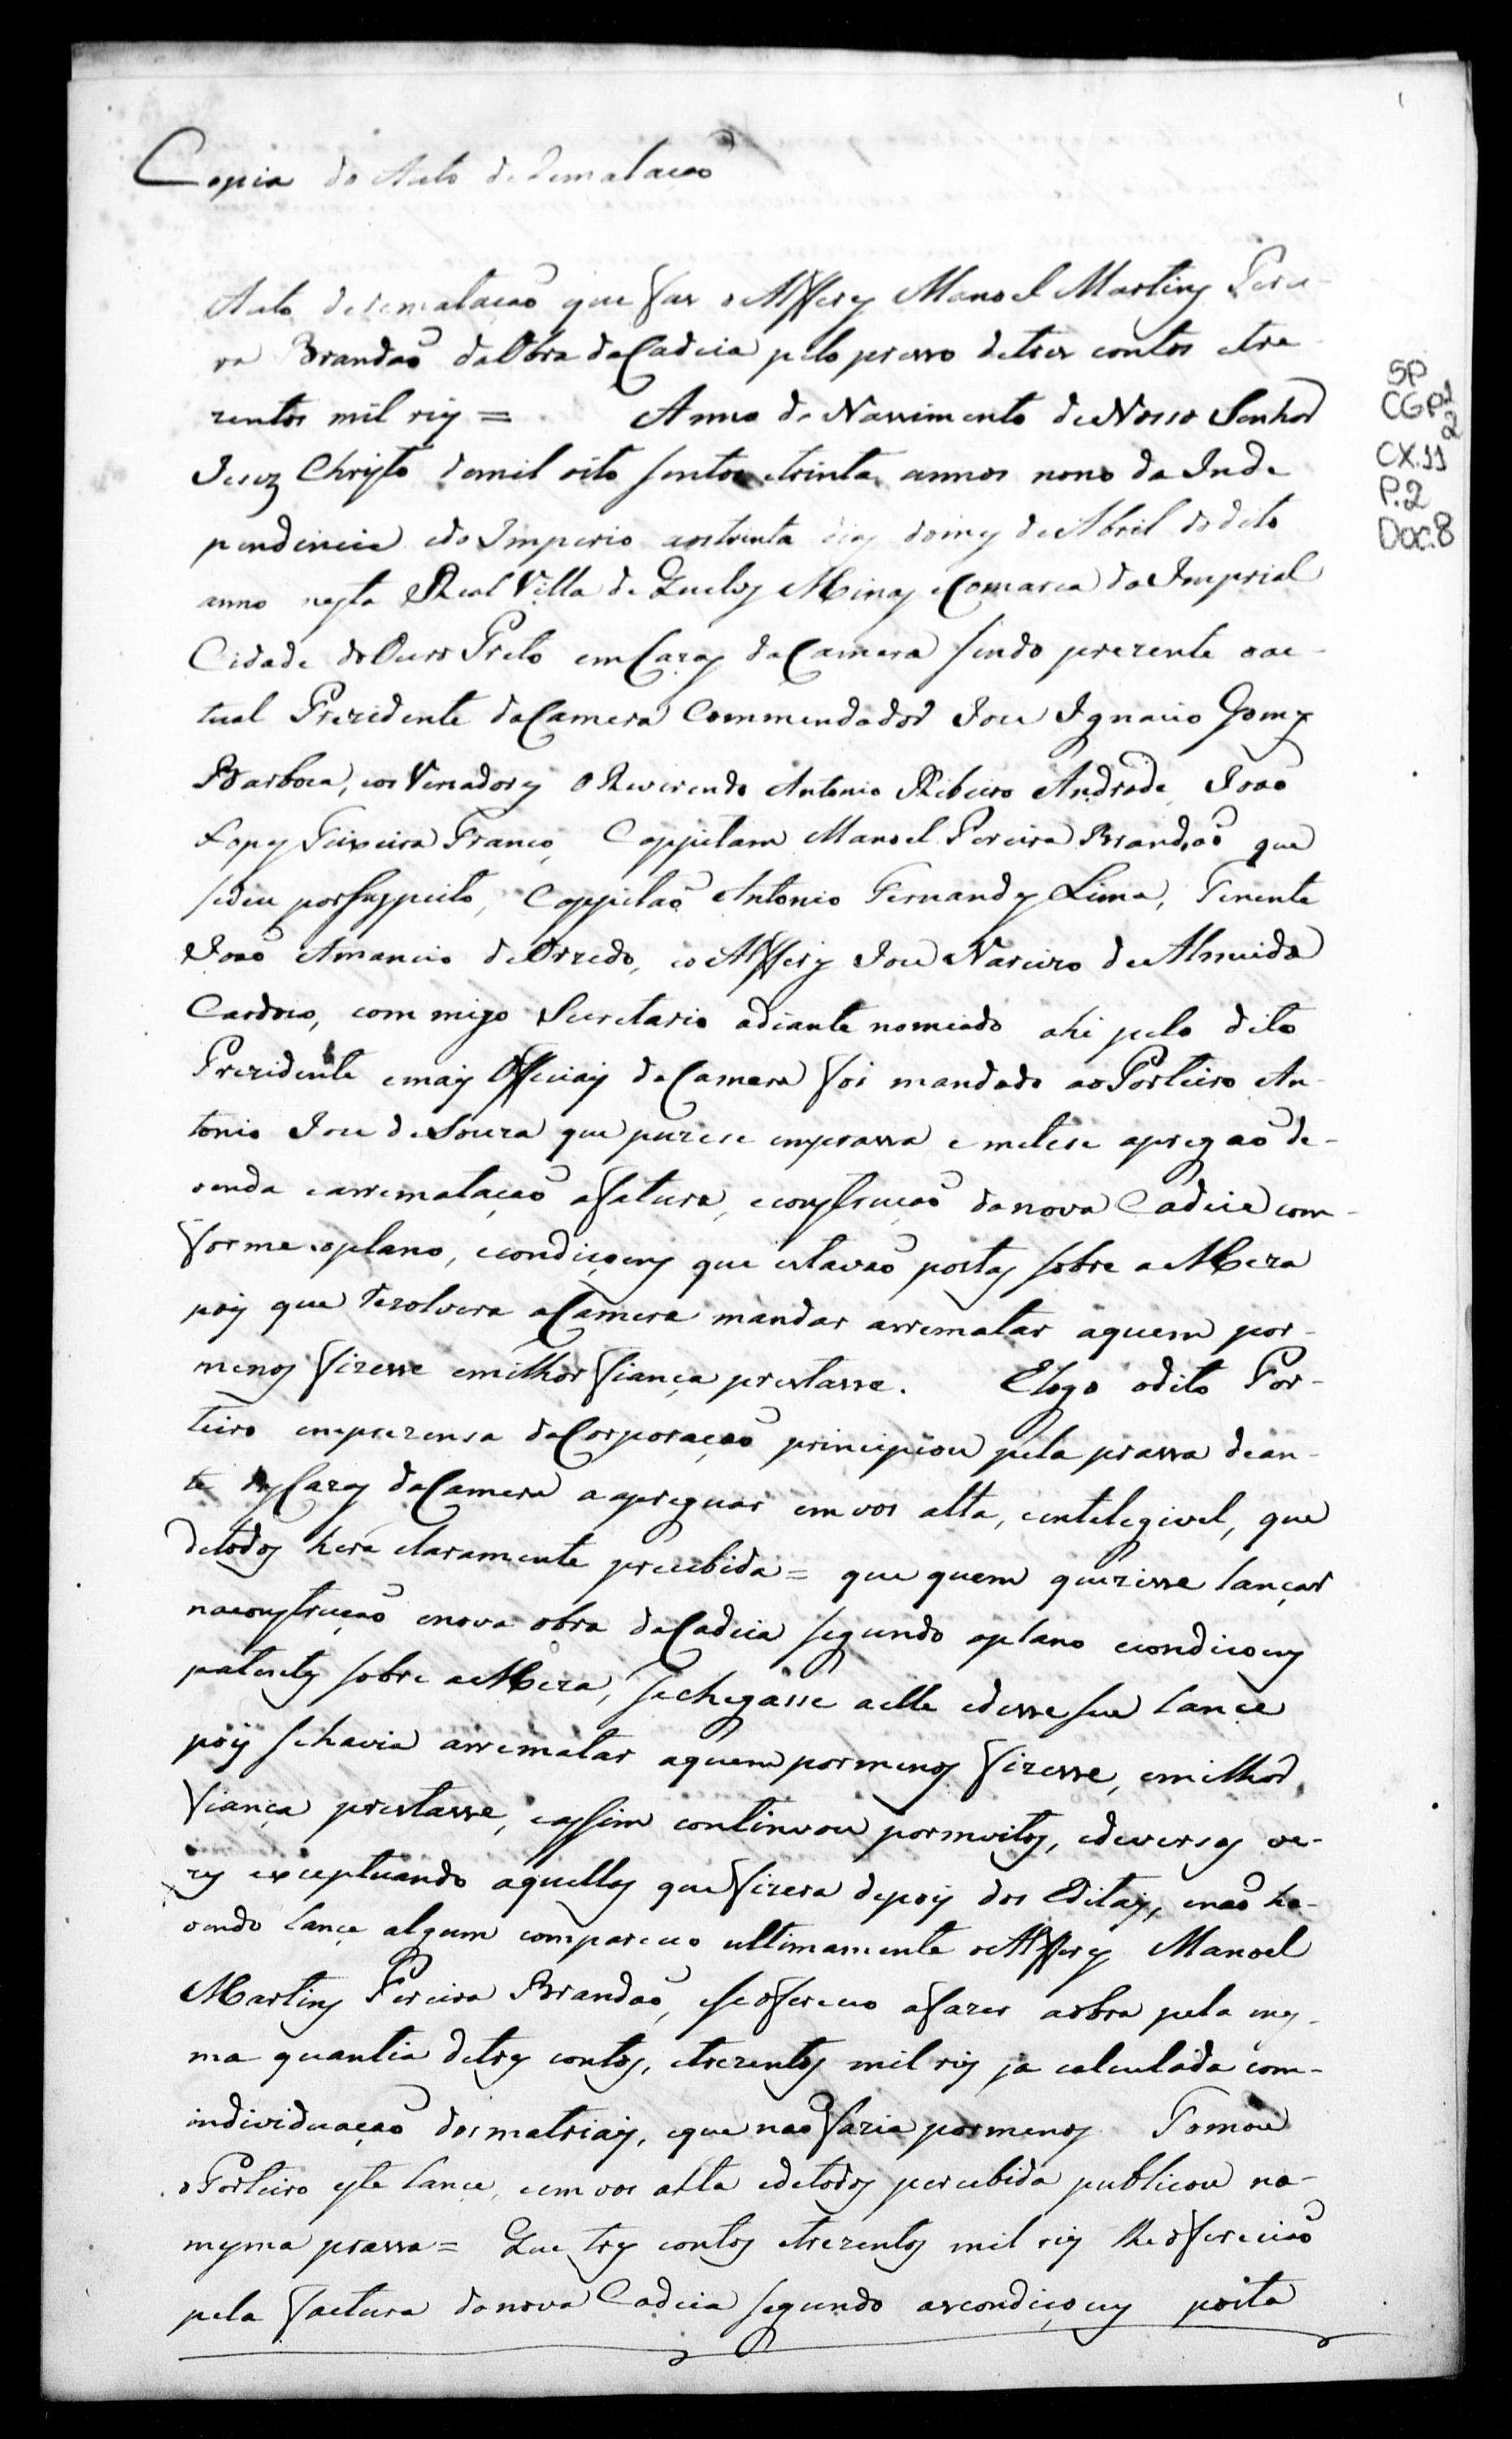 Copia do Auto de Rematacaõ
Auto de rematacaõ que faz o Alferes Manoel Martins Perei-
ra Brandaõ da Obra da Cadeia pelo presso de tres contos e tre
zentos mil reis = Anno do Nassimento de Nosso Senhor
Jesus Christo de mil oito sentos e trinta annos nono da Inde
pendencia e do Imperio aos trinta dias do mes de Abril do dito
anno nesta Real Villa de Queluz Minas e Comarca da Imperial
Cidade do Ouro Preto em Cazas da Camera sendo prezente o ac-
tual Prezidente da Camera Commendador Joze Ignacio Gomes
Barboza, e os Veriadores O Reverendo Antonio Ribeiro Andrade, Joaõ
Lopes Teixeira Franco, Cappitam Manoel Pereira Brandaõ que
se deu por suspeito, Cappitaõ Antonio Fernandes Lima, Tenente
Joaõ Amancio de Orzedo, e o Alferes Joze Narcizo de Almeida
Cardozo, commigo Secretario adiante nomiado ahi pelo dito
Prezidente e mais Officiais da Camera foi mandado ao Porteiro An-
tonio Joze de Souza que puzese em prassa e metese a pregaõ de
renda e arremataçaõ a fatura, e construçaõ da nova Cadeia com-
forme o plano, e condiçoens que estavaõ postas sobre a Meza
pois que rezolvera a Camera mandar arrematar a quem por
menos fizesse e milhor fiança prestasse. E logo o dito Por-
teiro em prezensa da Corporaçaõ principiou pela prassa dean-
te das Cazas da Camera a apreguar em vos alta, e intelegivel, que
de todos hera claramente precebida = que quem quizesse lançar
na construçaõ e nova obra da Cadeia segundo o plano e condicoens
patentes sobre a Meza, se chegasse a elle e desse seu lance
pois se havia arrematar a quem por menos fizesse, e milhor
fiança prestasse, e assim continuou por muitas, e deversas ve-
zes exceptuando aquellas que fizera depois dos Editais, e naõ ha-
vendo lançe algum compareceo ultimamente o Alferes Manoel
Martins Pereira Brandaõ, e se ofereceo a fazer a obra pela mes-
ma quantia de tres contos, e trezentos mil reis ja calculada com-
individuaçaõ dos matriais, e que naõ faria por menos Tomou
o Porteiro este lance, e em vos alta e de todos percebida publicou na-
mesma prassa = Que tres contos e trezentos mil reis lhe ofereciaõ
pela factura da nova Cadeia segundo as condiçoens posta
SP
CGP1
2
CX.11
P.2
Doc.8